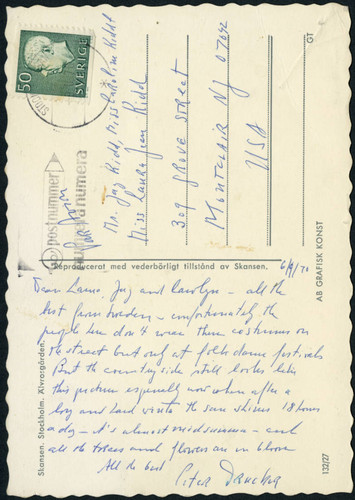 50
SVERIGE
STOCK
postnummer
numera
Air form
Mr. Jay Kidd, Miss Carolin Kidd
Miss Laura Jean Kidd
309 GROVE STREET
MONTCLAIR NJ 07042
USA
GT
Reproducerat med vederbörligt tillstånd av Skansen.
AB GRAFISK KONST
6/9/70
Dear Laura, Jay and Carolyn – all the
best from Sweden – unfortunately the
people here don't wear these costumes on
the street but only at folk dance festivals
But the countryside still looks like
this picture especially now when after a
long and hard winter the sun shines 18 hours
a day – it's almost midsummer – and
all the trees and flowers are in bloom
All the best
Peter Drucker
Skansen. Stockholm. Älvrosgården.
132/27